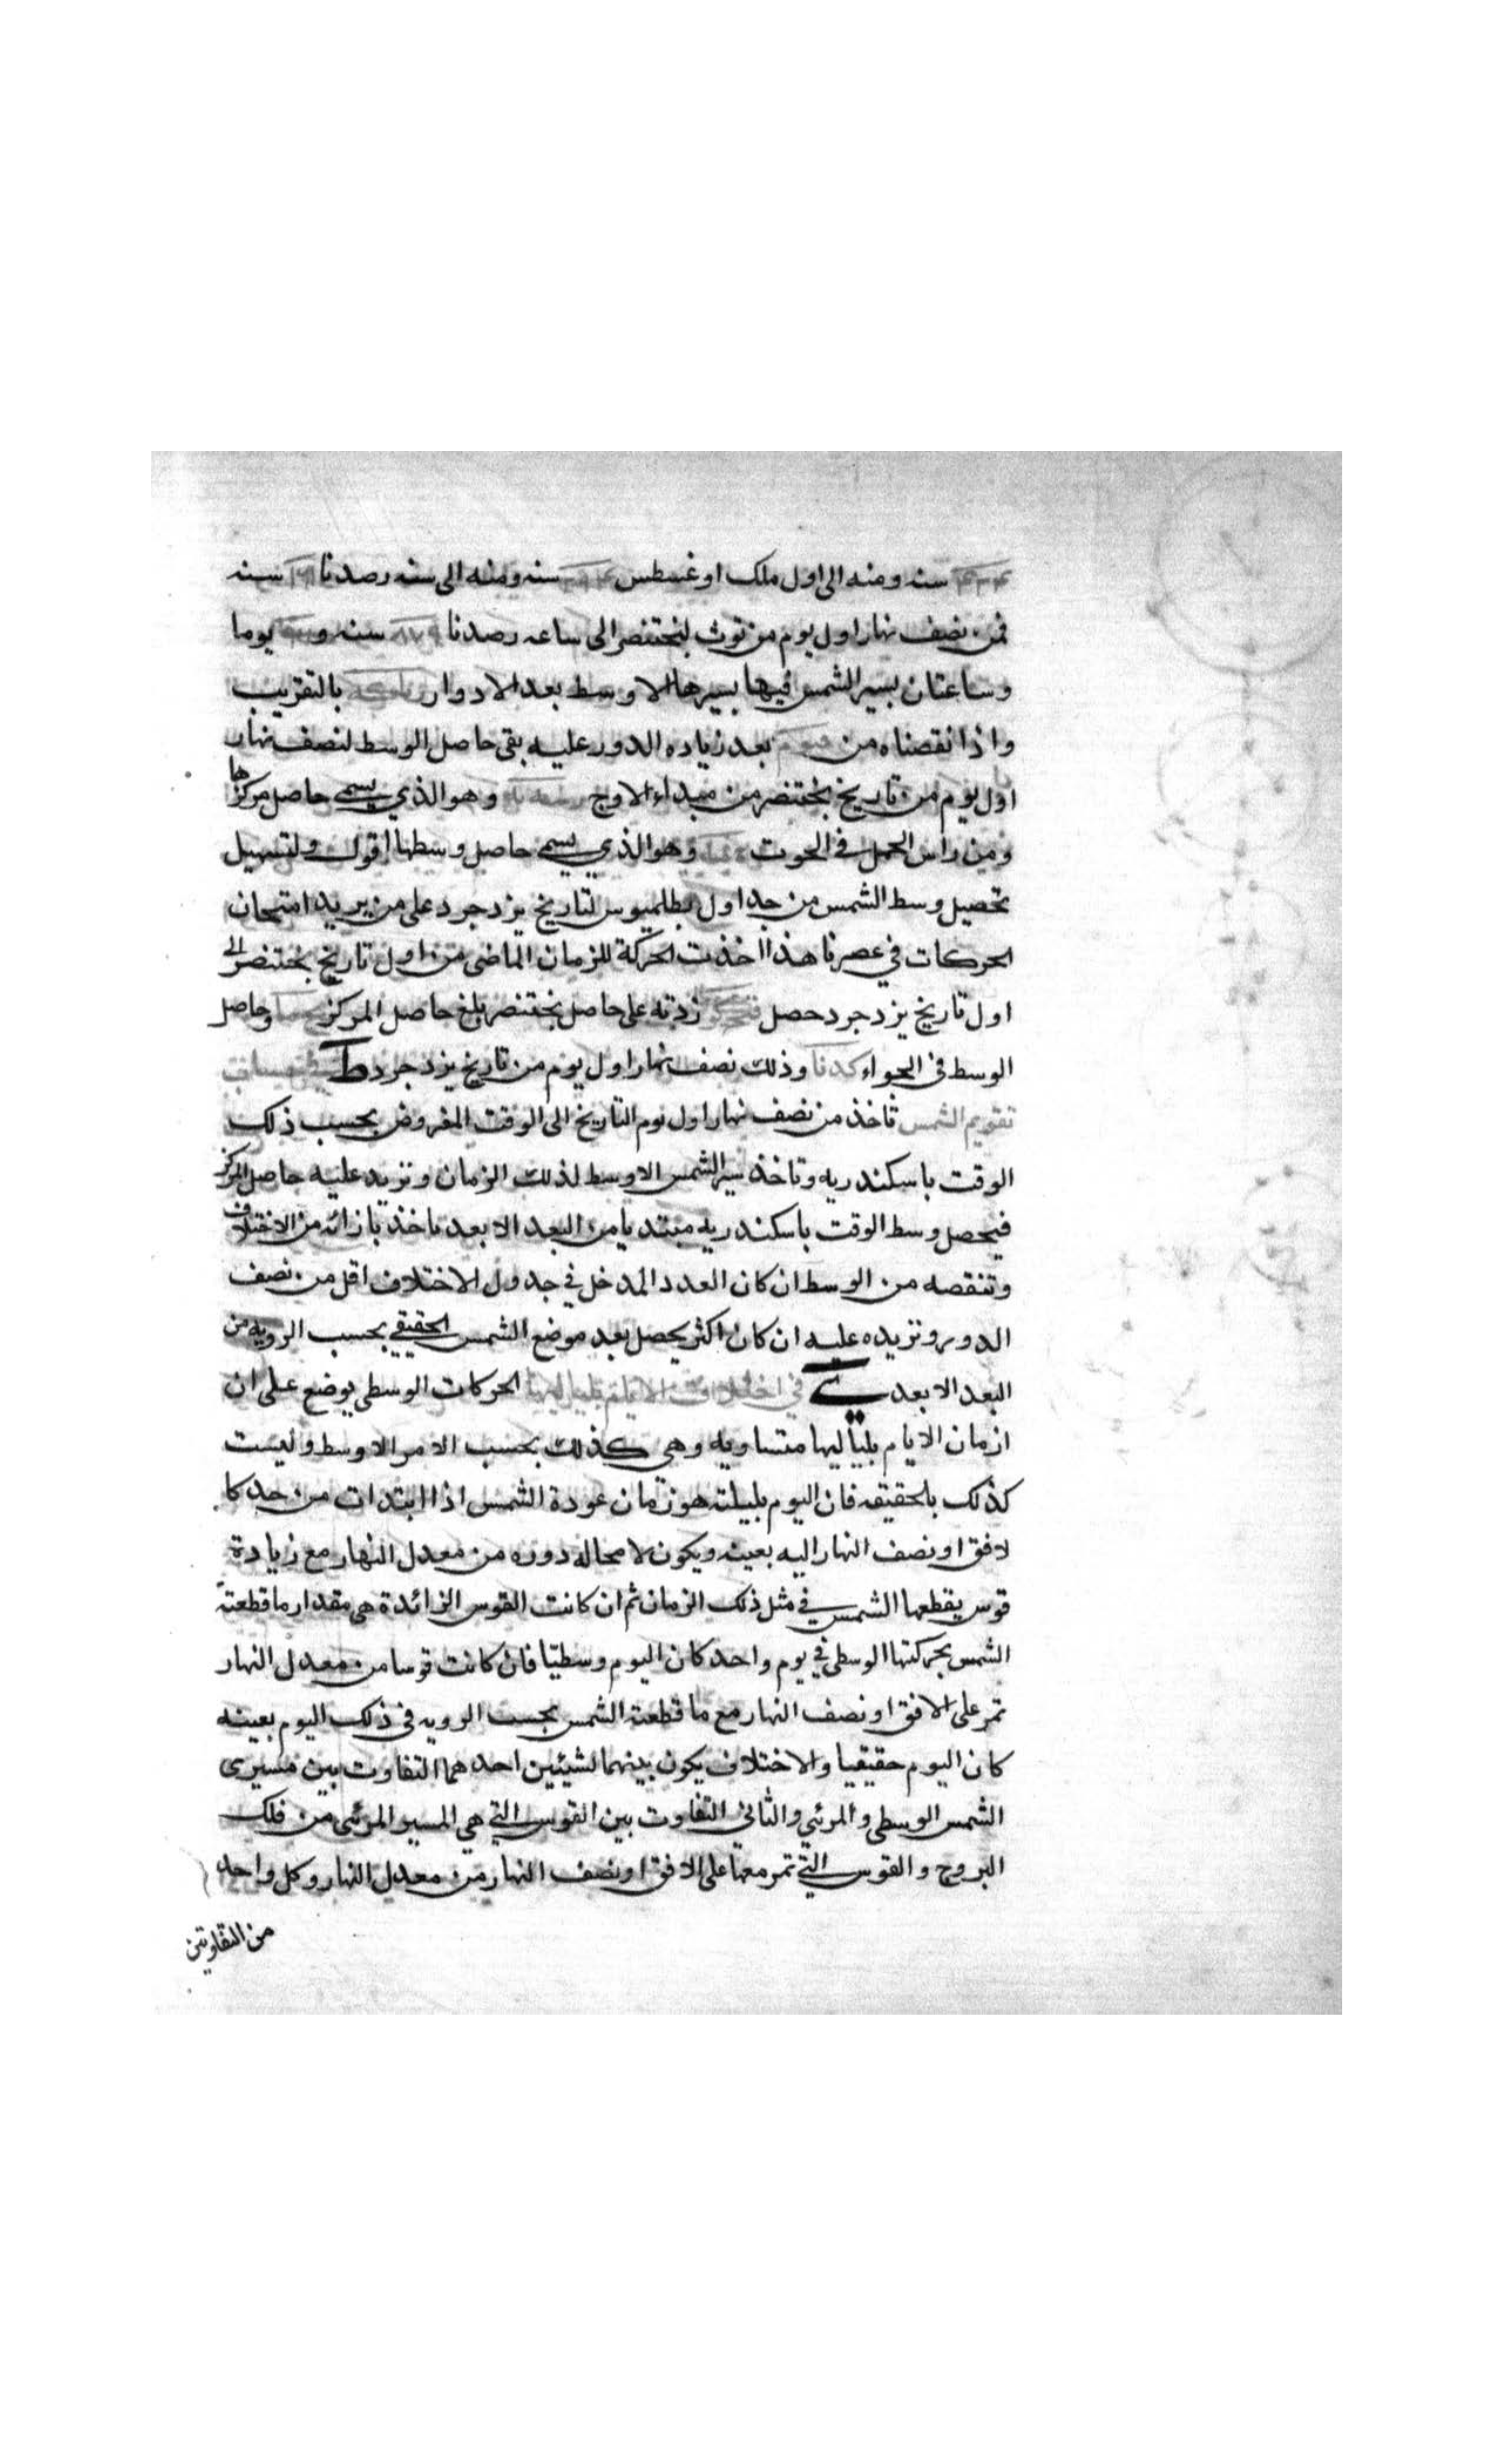 سنه ومنه الى اول ملك اوغسطس سنه ومنه الى سنه رصدنا سنه
فمن نصف نهار اول يوم من توث لبختنصر الى ساعه رصدنا ٨٧٩ سنه و يوما
وساعتان يسير الشمس فيها بسيرها الاوسط بعد الادوار بالتقريب
واذا نقصناه من بعد زياده الدور عليه بقى حاصل الوسط لنصف نهار
اول يوم من تاريخ بختنصر من مبداء الاوج وهو الذي يسمى حاصل مركزها
ومن راس الحمل فى الحوت وهو الذي يسمى حاصل وسطها اقول ولتسهيل
تحصيل وسط الشمس من جداول بطلميوس لتاريخ يزدجرد على من يريد امتحان
الحركات في عصرنا هذا اخذت الحركة للزمان الماضى من اول تاريخ بختنصر الى
اول تاريخ يزدجرد حصل زدته على حاصل بختنصر بلغ حاصل المركز وحاصل
الوسط فى الجواء وذلك نصف نهار اول يوم من تاريخ يزدجرد ط فى حساب
تقويم الشمس تأخذ من نصف نهار اول يوم التاريخ الى الوقت المفروض بحسب ذلك
الوقت باسكندريه وتاخذ سير الشمس الاوسط لذلك الزمان وتزيد عليه حاصل المركز
فيحصل وسط الوقت باسكندريه مبتديا من البعد الابعد تاخذ بازائه من الاختلاف
وتنقصه من الوسط ان كان العدد المدخل في جدول الاختلاف اقل من نصف
الدور وتزيده عليه ان كان اكثر يحصل بعد موضع الشمس الحقيقي بحسب الرويه من
البعد الابعد ى في اختلاف الايام بلياليها الحركات الوسطى يوضع على ان
ازمان الايام بلياليها متساويه وهى كذلك بحسب الامر الاوسط وليست
كذلك بالحقيقه فان اليوم بليلته هو زمان عودة الشمس اذا ابتدات من حد كا
لافق او نصف النهار اليه بعينه ويكون لا محاله دوره من معدل النهار مع زيادة
قوس يقطعها الشمس في مثل ذلك الزمان ثم ان كانت القوس الزائدة هى مقدار ما قطعته
الشمس بحركتها الوسطى في يوم واحد كان اليوم وسطيّا فان كانت قوسا من معدل النهار
تمر على الافق او نصف النهار مع ما قطعته الشمس بحسب الرويه فى ذلك اليوم بعينه
كان اليوم حقيقيا والاختلاف يكون بينهما لشيئين احدهما التفاوت بين مسيرى
الشمس الوسطى والمرئي والثانى التفاوت بين القوس التي هي المسير المرئى من فلك
البروج والقوس التي تمر معها على الافق او نصف النهار من معدل النهار وكل واحد
من التفاوتين